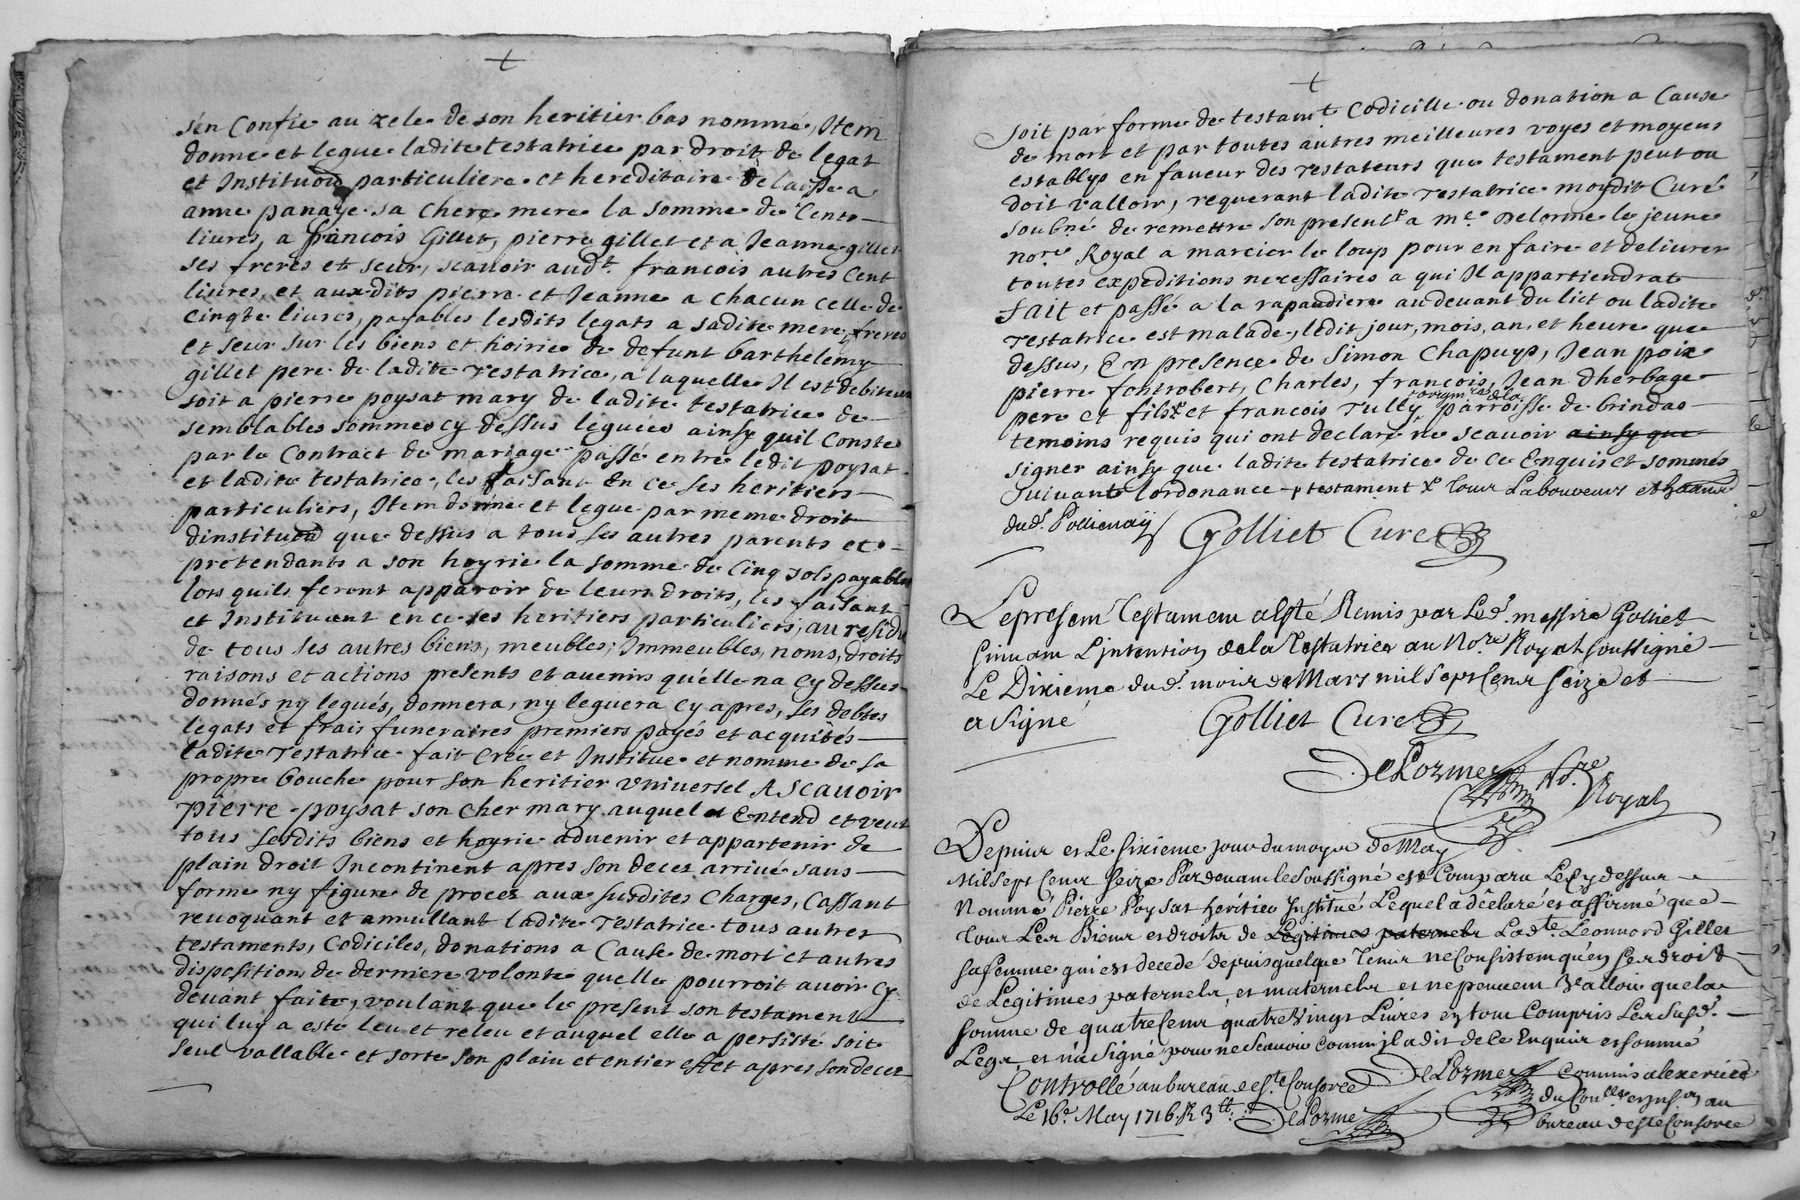 s'en Confie au zele de son heritier bas nommé, Item
donne et legue ladite testatrice par droit de legat
et Institu͠on particuliere et hereditaire delaisse a
anne panaye sa chere mere la somme de Cents
livres, a francois Gillet, pierre gillet et a Jeanne gillet
ses freres et seur, scauoir aud.t francois autres Cent
liures, et auxdits pierre et Jeanne a chacun celle de
cinqte liures, payables lesdits legats a sadite mere, freres
et seur sur les biens et hoirie de defunt barthelemy
gillet pere de ladite testatrice, a laquelle Il est debiteur
soit a pierre poysat mary de ladite testatrice de
semblables sommes cy dessus leguées ainsy quil Conste
par le Contract de mariage passé entre ledit poysat
et ladite testatrice, les faisant en ce ses heritiers
particuliers, Item donne et legue par meme droit
dinstitu͠on que dessus a tous ses autres parents et
pretendants a son hoyrie la somme de Cinq sols payables
lors quils feront apparoir de leurs droits, les faisant
et Instituant en ce ses heritiers particuliers, au residu
de tous ses autres biens, meubles, Immeubles, noms, droits
raisons et actions presents et auenirs qu'elle na cy dessus
donnés ny legués, donnera, ny leguera cy apres, ses debtes
legats et frais funeraires premiers payés et acquités
ladite testatrice fait crée et Institue et nomme de sa
propre bouche pour son heritier vniuersel A scauoir
pierre poysat son cher mary auquel Entend et veut
tous sesdits biens et hoyrie aduenir et appartenir de
plain droit Incontinent apres son decez arriué sans
forme ny figure de procez aux susdites Charges, Cassant
reuoquant et annullant ladite testatrice tous autres
testaments, Codiciles, donations a Cause de mort et autres
dispositions de derniere volonte quelle pourroit auoir cy
deuant faite, voulant que le present son testament
qui luy a esté leu et releu et auquel elle a persiste soit
seul vallable et sorte son plain et entier effet apres son decez
soit par forme de testam.t Codicille ou donation a Cause
de mort et par toutes autres meilleures voyes et moyens
establys en faueur des testateurs que testament peut ou
doit valloir, requerant ladite testatrice moydit Curé
soubné de remettre son present a m.e Delorme le jeune
no.re Royal a marcier le loup pour en faire et deliurer
toutes expeditions necessaires a qui Il appartiendrat
fait et passé a la rapaudiere audeuant du lict ou ladite
testatrice est malade, ledit jour, mois, an, et heure que
dessus, En presence de Simon Chapuys, Jean poix
pierre fontrobert, Charles, francois, Jean dherbage
pere et fils et francois tully parroisse de brindas
temoins requis qui ont declaré ne scauoir ainsy que
signer ainsy que ladite testatrice de ce Enquis et sommés
suivant lordonance testament tous Laboureurs
dud. Pollienay Golliet Curé
Le present Testament a esté Remis par Led. messire Golliet
suiuant L'intention dela Testatrice au No.re Royal soussigné
Le Dixieme dud. mois de Mars mil sept Cent seize et
a signé Golliet Curé
DeLorme No.re
Royal
Depuis et Le sixieme jour du moys de May
Mil sept Cent seize Pardeuant le soussigné est Comparu Le cy dessus
Nommé Pierre Poysat heritier Institué Lequel a déclaré et affirmé que
tous Les Biens et droits de Légitimes paternels Lad.te Leonnord Gillet
sa femme qui est decedé depuis quelque Temps ne Consistent qu'en ses droits
de Legitimes paternels, et maternels et ne peuuent valloir que la
somme de quatre Cent quatre Vingt Liures en tout Compris Les susd.
Legs, et n'a signé pour ne scauoir comm' il a dit de ce Enquis et sommé
Controllé au bureau de s.te Consorce DeLorme Commis a lexercice
Le 16.e May 1716 R 3tt DeLorme
bureau de s.te Consorce